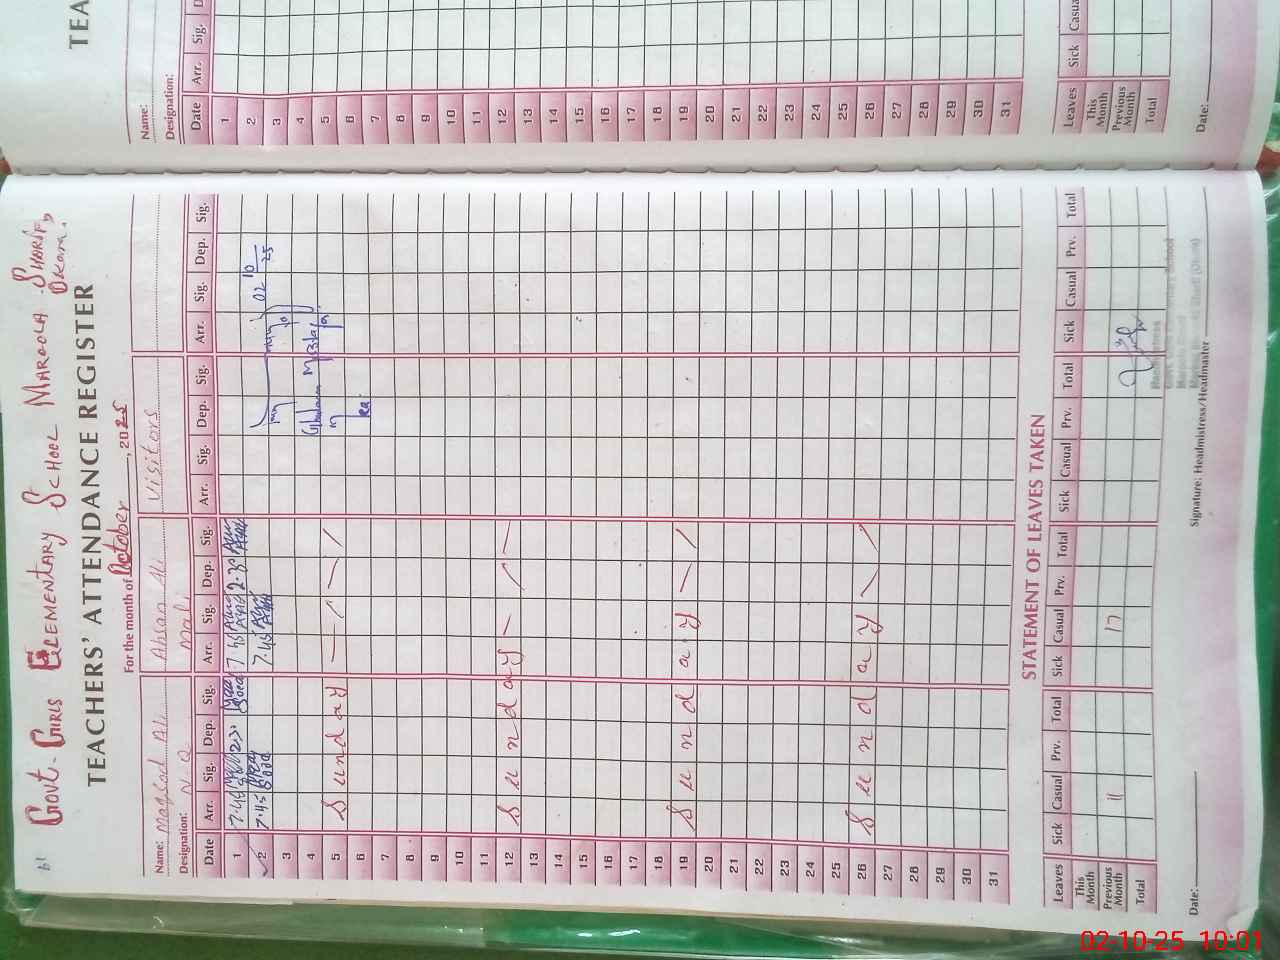 61
GOVT. GIRLS ELEMENTARY SCHOOL MAROOLA SHARIF,
OKARA.
TEACHERS' ATTENDANCE REGISTER
For the month of October, 2025
Name: Maqsod Ali Ahsan Ali Visitors
Designation: N-Q Mali
Date Arr. Sig. Dep. Sig. Arr. Sig. Dep. Sig. Arr. Sig. Dep. Sig. Arr. Sig. Dep. Sig.
1 7.45 2.30 7.45 2.30
2 7.45 7.45 02 10 25
3
4
5 Sunday
6
7
8
9
10
11
12 Sunday
13
14
15
16
17
18
19 Sunday
20
21
22
23
24
25
26 Sunday
27
28
29
30
31
STATEMENT OF LEAVES TAKEN
Leaves Sick Casual Prv. Total Sick Casual Prv. Total Sick Casual Prv. Total Sick Casual Prv. Total
This Month
Previous Month 11 17
Total
Date: Signature: Headmistress/Headmaster
TEA
Name:
Designation:
Date Arr. Sig.
1
2
3
4
5
6
7
8
9
10
11
12
13
14
15
16
17
18
19
20
21
22
23
24
25
26
27
28
29
30
31
Leaves Sick Casual
This Month
Previous Month
Total
Date:
02-10-25 10:01